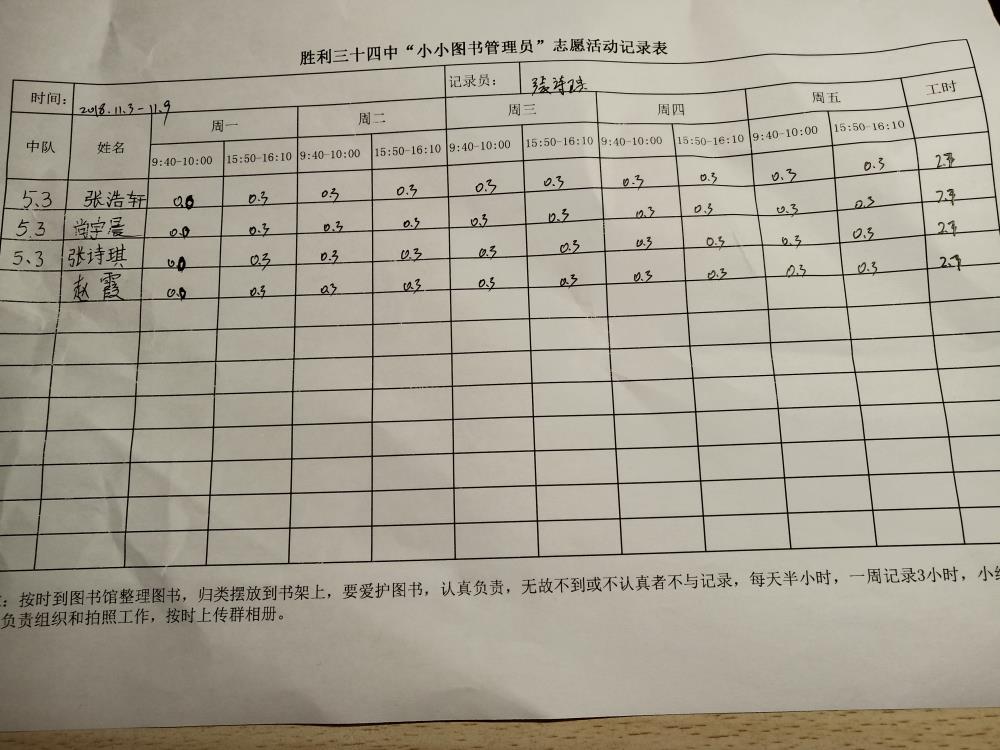 胜利三十四中“小小图书管理员”志愿活动记录表
时间： 2018.11.3-11.9 记录员： 张诗琪
中队 姓名 周一 周二 周三 周四 周五 工时
9:40-10:00 15:50-16:10 9:40-10:00 15:50-16:10 9:40-10:00 15:50-16:10 9:40-10:00 15:50-16:10 9:40-10:00 15:50-16:10
5.3 张浩轩 0.0 0.3 0.3 0.3 0.3 0.3 0.3 0.3 0.3 0.3 2.7
5.3 尚宇晨 0.0 0.3 0.3 0.3 0.3 0.3 0.3 0.3 0.3 0.3 2.7
5.3 张诗琪 0.0 0.3 0.3 0.3 0.3 0.3 0.3 0.3 0.3 0.3 2.7
赵霞 0.0 0.3 0.3 0.3 0.3 0.3 0.3 0.3 0.3 0.3 2.7
：按时到图书馆整理图书，归类摆放到书架上，要爱护图书，认真负责，无故不到或不认真者不与记录，每天半小时，一周记录3小时，小
负责组织和拍照工作，按时上传群相册。